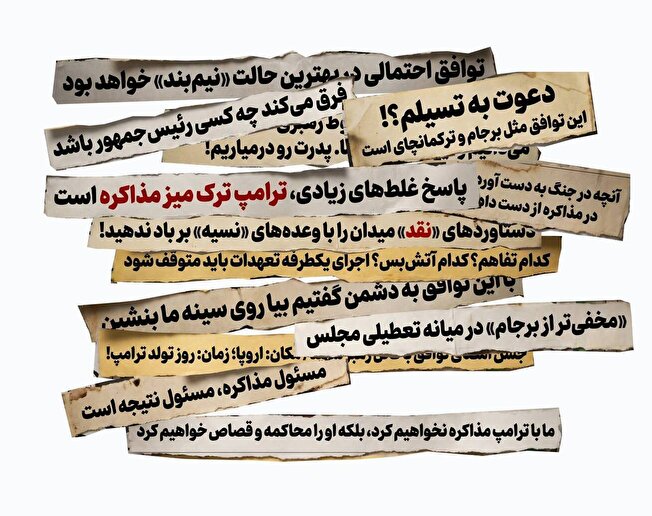 توافق احتمالی در بهترین حالت «نیم‌بند» خواهد بود
فرق می‌کند چه کسی رئیس جمهور باشد
دعوت به تسیلم؟!
این توافق مثل برجام و ترکمانچای است
پدرت رو درمیاریم!
پاسخ غلط‌های زیادی، ترامپ ترک میز مذاکره است
آنچه در جنگ به دست آورد
در مذاکره از دست داد
دستاوردهای «نقد» میدان را با وعده‌های «نسیه» بر باد ندهید!
کدام تفاهم؟ کدام آتش‌بس؟ اجرای یکطرفه تعهدات باید متوقف شود
با این توافق به دشمن گفتیم بیا روی سینه ما بنشین
«مخفی‌تر از برجام» در میانه تعطیلی مجلس
مکان: اروپا؛ زمان: روز تولد ترامپ!
مسئول مذاکره، مسئول نتیجه است
ما با ترامپ مذاکره نخواهیم کرد، بلکه او را محاکمه و قصاص خواهیم کرد